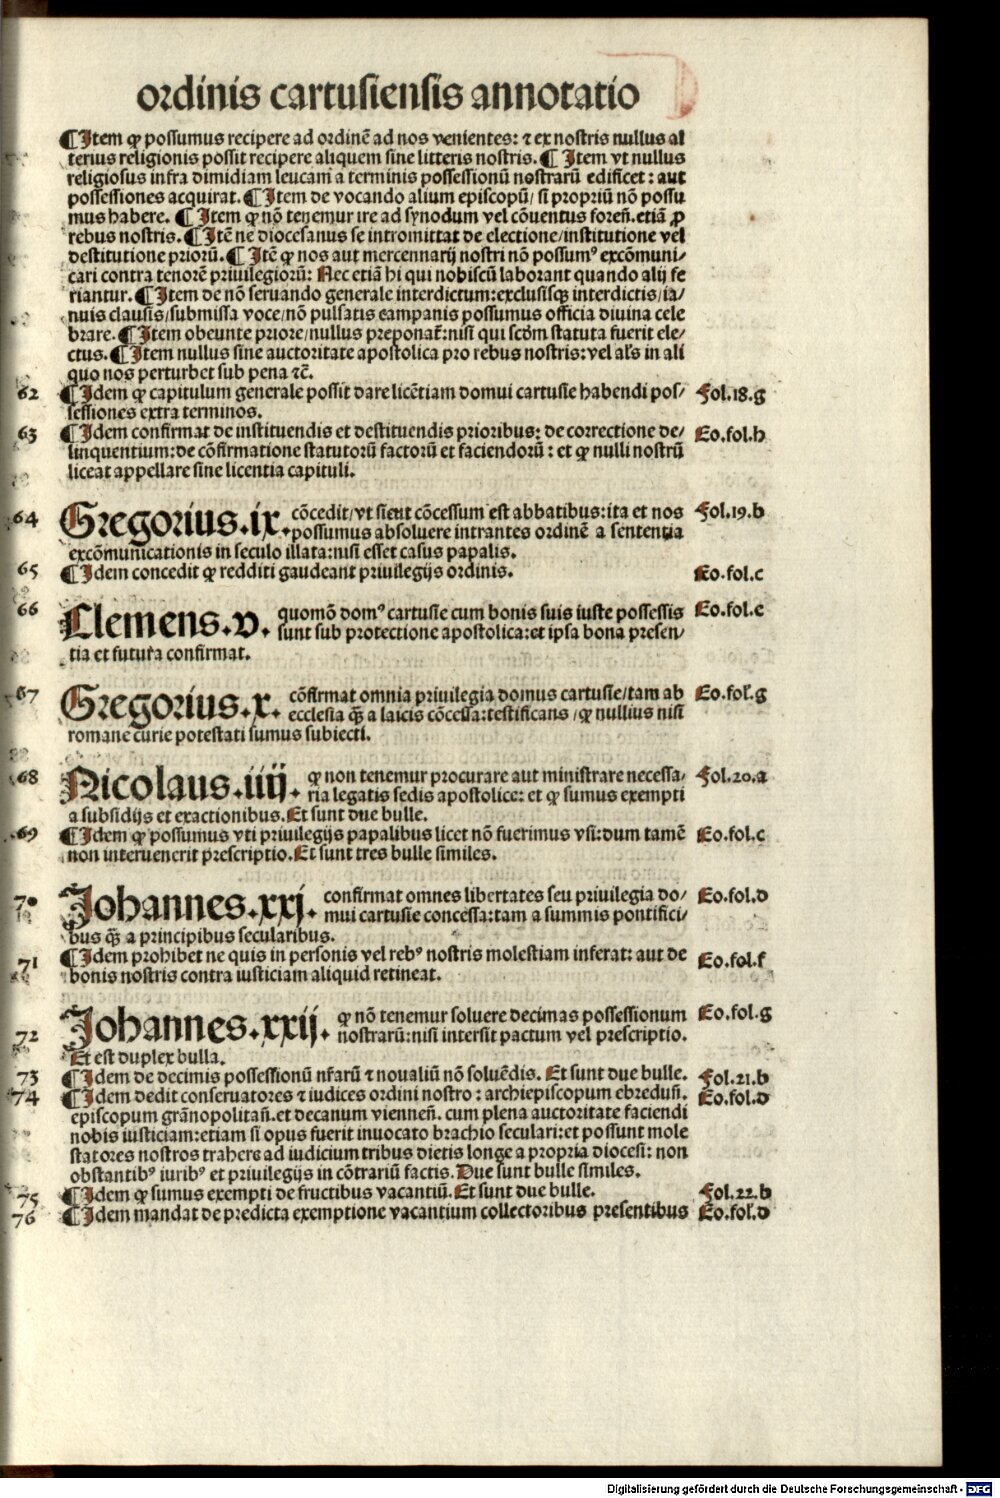 ordinis cartusiensis annotatio
¶Item ꝙ possumus recipere ad ordinē ad nos venientes: ⁊ ex nostris nullus al
terius religionis possit recipere aliquem sine litteris nostris.¶ Item vt nullus
religiosus infra dimidiam leucam a terminis possessionū nostrarū edificet: aut
possessiones acquirat.¶Item de vocando alium episcopū/ si propriū nō possu
mus habere. ¶Item ꝙ nō tenemur ire ad synodum vel cōuentus foren̄. etiā ꝓ
rebus nostris.¶Itē ne diocesanus se intromittat de electione/institutione vel
destitutione priorū.¶Itē ꝙ nos aut mercennarij nostri nō possumꝰ excōmuni/
cari contra tenorē priuilegiorū: Nec etiā hi qui nobiscū laborant quando alij fe
riantur.¶Item de nō seruando generale interdictum:exclusisqȝ interdictis/ia/
nuis clausis/submissa voce/nō pulsatis campanis possumus officia diuina cele
brare.¶Item obeunte priore/nullus preponat̄:nisi qui scd̄m statuta fuerit ele/
ctus.¶Item nullus sine auctoritate apostolica pro rebus nostris:vel al's in ali
quo nos perturbet sub pena ⁊c̄.
62 ¶Idem ꝙ capitulum generale possit dare licētiam domui cartusie habendi pos/ Fol.18.g
sessiones extra terminos.
63 ¶Idem confirmat de instituendis et destituendis prioribus: de correctione de/ Eo.fol.h
linquentium:de cōfirmatione statutorū factorū et faciendorū: et ꝙ nulli nostrū
liceat appellare sine licentia capituli.
64 Gregorius.ix. cōcedit/vt sicut cōcessum est abbatibus:ita et nos Fol.19.b
possumus absoluere intrantes ordinē a sententia
excōmunicationis in seculo illata:nisi esset casus papalis.
65 ¶Idem concedit ꝙ redditi gaudeant priuilegijs ordinis. Eo.fol.c
66 Clemens.v. quomō domꝰ cartusie cum bonis suis iuste possessis Eo.fol.e
sunt sub protectione apostolica:et ipsa bona presen/
tia et futura confirmat.
67 Gregorius.x. cōfirmat omnia priuilegia domus cartusie/tam ab Eo.fol.g
ecclesia qȝ̄ a laicis cōcessa:testificans/ꝙ nullius nisi
romane curie potestati sumus subiecti.
68 Nicolaus.iiij. ꝙ non tenemur procurare aut ministrare necessa/ Fol.20.a
ria legatis sedis apostolice: et ꝙ sumus exempti
a subsidijs et exactionibus. Et sunt due bulle.
69 ¶Idem ꝙ possumus vti priuilegijs papalibus licet nō fuerimus vsi:dum tamē Eo.fol.c
non interuenerit prescriptio. Et sunt tres bulle similes.
70 Johannes.xxj. confirmat omnes libertates seu priuilegia do/ Eo.fol.d
mui cartusie concessa:tam a summis pontifici/
bus qȝ̄ a principibus secularibus.
71 ¶Idem prohibet ne quis in personis vel rebꝰ nostris molestiam inferat: aut de Eo.fol.f
bonis nostris contra iusticiam aliquid retineat.
72 Johannes.xxij. ꝙ nō tenemur soluere decimas possessionum Eo.fol.g
nostrarū:nisi intersit pactum vel prescriptio.
Et est duplex bulla.
73 ¶Idem de decimis possessionū nr̄arū ⁊ noualiū nō soluēdis. Et sunt due bulle. Fol.21.b
74 ¶Idem dedit conseruatores ⁊ iudices ordini nostro: archiepiscopum ebredun̄. Eo.fol.d
episcopum grānopolitan̄.et decanum viennen̄. cum plena auctoritate faciendi
nobis iusticiam:etiam si opus fuerit inuocato brachio seculari:et possunt mole
statores nostros trahere ad iudicium tribus dietis longe a propria diocesi: non
obstantibꝰ iuribꝰ et priuilegijs in cōtrariū factis. Due sunt bulle similes.
75 ¶Idem ꝙ sumus exempti de fructibus vacantiū. Et sunt due bulle. Fol.22.b
76 ¶Idem mandat de predicta exemptione vacantium collectoribus presentibus Eo.fol.d
Digitalisierung gefördert durch die Deutsche Forschungsgemeinschaft - DFG